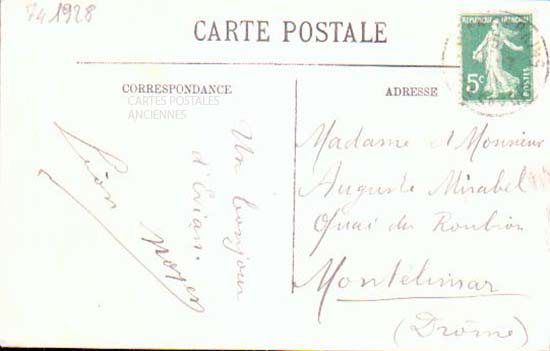 74 1928
CARTE POSTALE
CORRESPONDANCE
CARTES POSTALES
ANCIENNES
Un bonjour
d'Evian.
Léon Noyer
ADRESSE
REPUBLIQUE FRANÇAISE
5c
POSTES
Madame et Monsieur
Auguste Mirabel
Quai du Roubion
Montélimar
(Drôme)